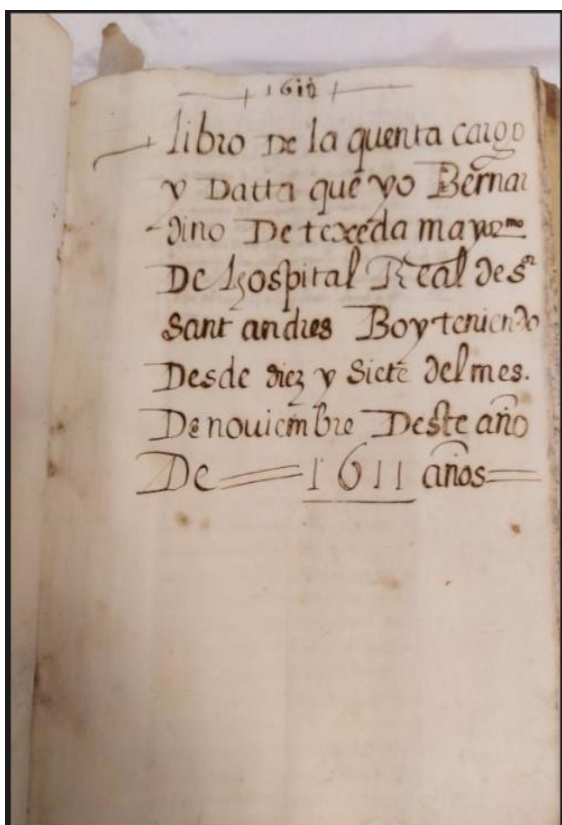 1611
libro De la quenta cargo
y Datta que yo Bernar
dino De texeda mayor.mo
De hospital Real de sr
Sant andres Boy teniendo
Desde diez y Siete del mes.
De nouiembre Deste año
De == 1611 años ==